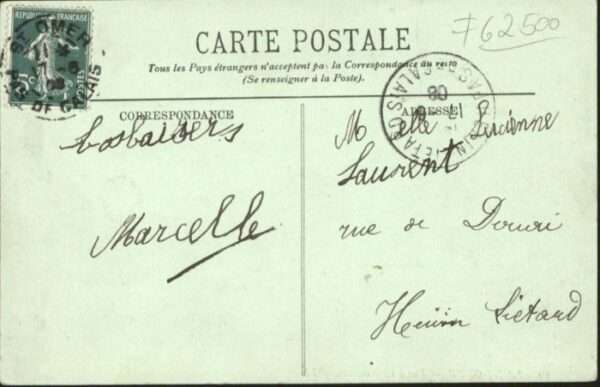 ST OMER
RÉPUBLIQUE FRANÇAISE
PAS DE CALAIS
POSTES
762500
CARTE POSTALE
Tous les Pays étrangers n'acceptent pas la Correspondance au recto
(Se renseigner à la Poste).
CORRESPONDANCE
ADRESSE
PAS DE CALAIS
bons baisers
Marcelle
Melle Lucienne
Laurent
rue de Douai
Hénin Liétard